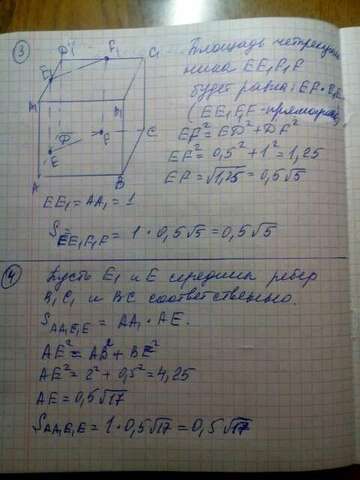 3
D1 F1 C1
E1
A1 B1
D F C
E
A B
Площадь четырехуголь
ника EE₁F₁F
будет равна: EF · E₁E
(EE₁F₁F - прямоугол)
EF² = ED² + DF²
EF² = 0,5² + 1² = 1,25
EF = √1,25 = 0,5√5
EE₁ = AA₁ = 1
S EE₁F₁F = 1 · 0,5√5 = 0,5√5
4
Пусть E₁ и E середины ребер
B₁C₁ и BC соответственно.
S AA₁E₁E = AA₁ · AE.
AE² = AB² + BE²
AE² = 2² + 0,5² = 4,25
AE = 0,5√17
S AA₁E₁E = 1 · 0,5√17 = 0,5√17